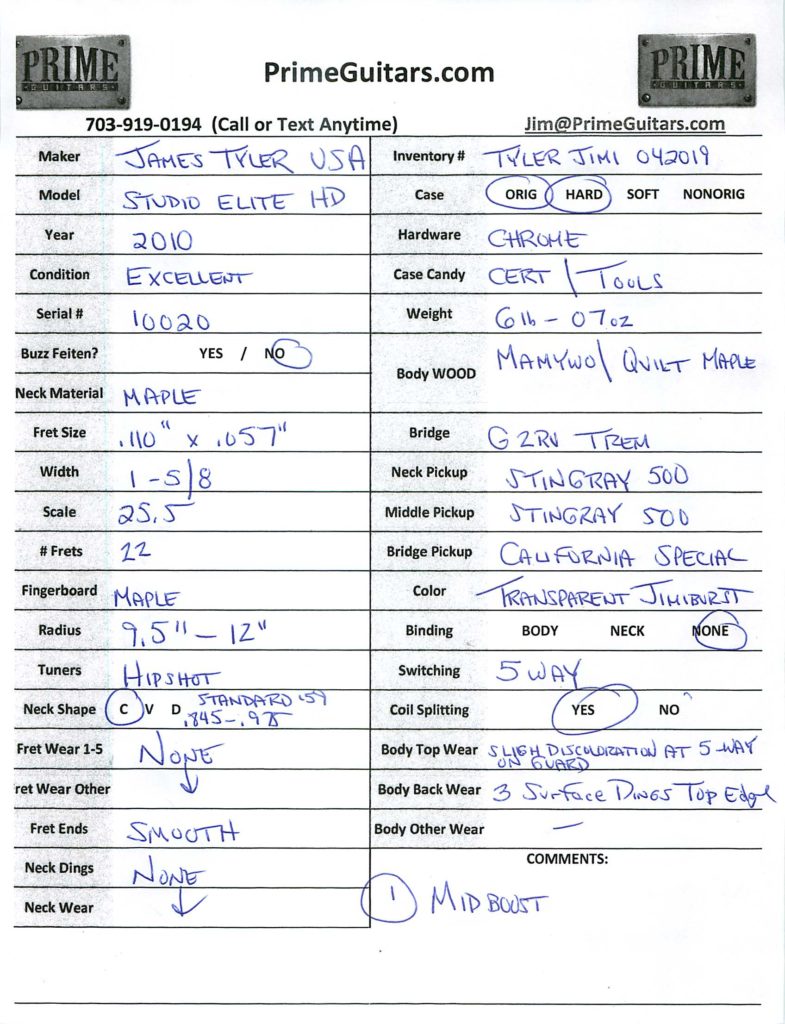 PRIME GUITARS
PrimeGuitars.com
PRIME GUITARS
703-919-0194 (Call or Text Anytime)
Jim@PrimeGuitars.com
Maker JAMES TYLER USA
Inventory # TYLER JIMI 042019
Model STUDIO ELITE HD
Case ORIG HARD SOFT NONORIG
Year 2010
Hardware CHROME
Condition EXCELLENT
Case Candy CERT / TOOLS
Serial # 10020
Weight 6 lb - 07 oz
Buzz Feiten? YES / NO
Body WOOD MAMYWO/ QUILT MAPLE
Neck Material MAPLE
Fret Size .110" x .057"
Bridge G2RV TREM
Width 1-5/8
Neck Pickup STINGRAY 500
Scale 25.5
Middle Pickup STINGRAY 500
# Frets 22
Bridge Pickup CALIFORNIA SPECIAL
Fingerboard MAPLE
Color TRANSPARENT JIMIBURST
Radius 9.5" - 12"
Binding BODY NECK NONE
Tuners HIPSHOT
Switching 5 WAY
Neck Shape C V D STANDARD '59
.845-.925
Coil Splitting YES NO
Fret Wear 1-5 NONE
Body Top Wear SLIGH DISCOLORATION AT 5-WAY
ON GUARD
ret Wear Other
Body Back Wear 3 SURFACE DINGS TOP EDGE
Fret Ends SMOOTH
Body Other Wear —
Neck Dings NONE
COMMENTS:
Neck Wear
1 MID BOOST